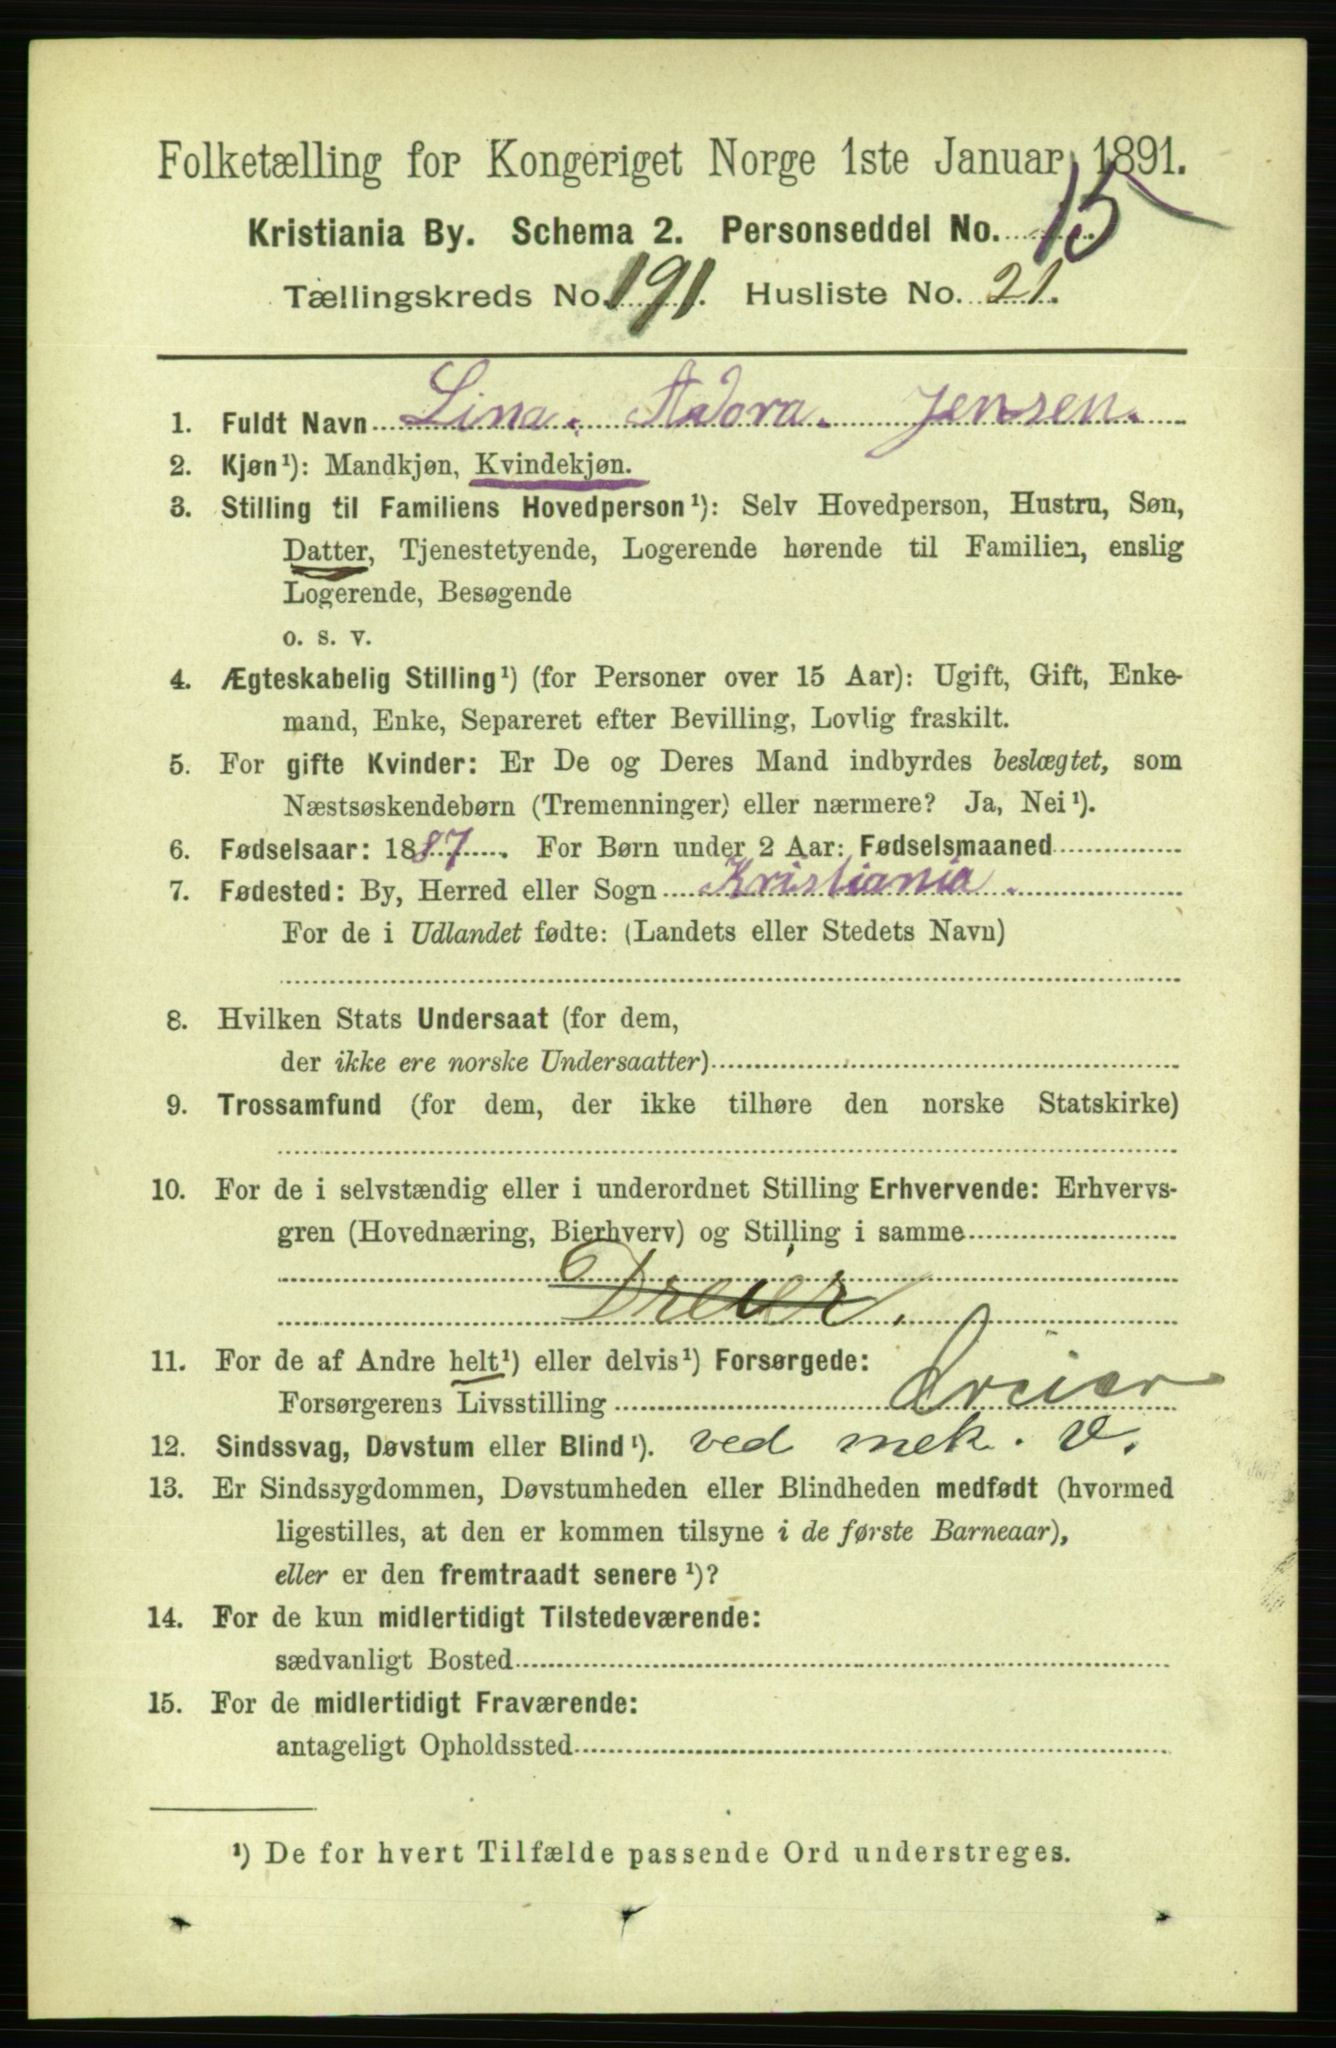 Folketælling for Kongeriget Norge 1ste Januar 1891.
Kristiania By. Schema 2. Personseddel No. 15
Tællingskreds No. 191. Husliste No. 21.
1. Fuldt Navn Lina. Adora. Jensen.
2. Kjøn¹): Mandkjøn, Kvindekjøn.
3. Stilling til Familiens Hovedperson¹): Selv Hovedperson, Hustru, Søn,
Datter, Tjenestetyende, Logerende hørende til Familien, enslig
Logerende, Besøgende
o. s. v.
4. Ægteskabelig Stilling¹) (for Personer over 15 Aar): Ugift, Gift, Enke-
mand, Enke, Separeret efter Bevilling, Lovlig fraskilt.
5. For gifte Kvinder: Er De og Deres Mand indbyrdes beslægtet, som
Næstsøskendebørn (Tremenninger) eller nærmere? Ja, Nei¹).
6. Fødselsaar: 1887. For Børn under 2 Aar: Fødselsmaaned
7. Fødested: By, Herred eller Sogn Kristiania.
For de i Udlandet fødte: (Landets eller Stedets Navn)
8. Hvilken Stats Undersaat (for dem,
der ikke ere norske Undersaatter)
9. Trossamfund (for dem, der ikke tilhøre den norske Statskirke)
10. For de i selvstændig eller i underordnet Stilling Erhvervende: Erhvervs-
gren (Hovednæring, Bierhverv) og Stilling i samme
Dreier.
11. For de af Andre helt¹) eller delvis¹) Forsørgede:
Forsørgerens Livsstilling Dreier
12. Sindssvag, Døvstum eller Blind¹). ved mek. V.
13. Er Sindssygdommen, Døvstumheden eller Blindheden medfødt (hvormed
ligestilles, at den er kommen tilsyne i de første Barneaar),
eller er den fremtraadt senere¹)?
14. For de kun midlertidigt Tilstedeværende:
sædvanligt Bosted
15. For de midlertidigt Fraværende:
antageligt Opholdssted
¹) De for hvert Tilfælde passende Ord understreges.